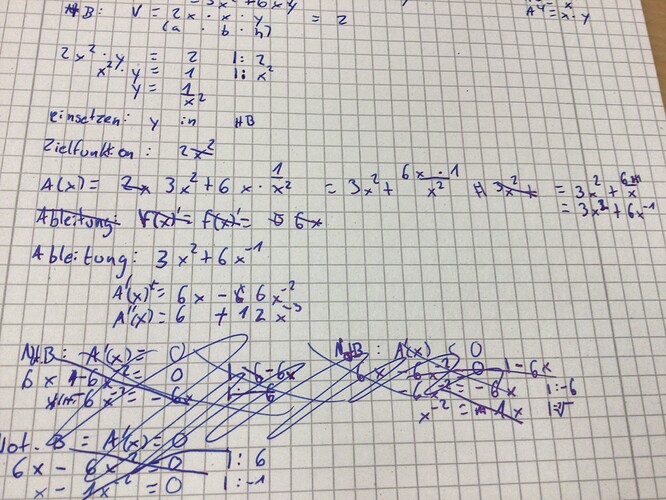 3x² + 6xy
A4 = x · y
NB: V = 2x · x · y = 2
(a · b · h)
2x² · y = 2 |: 2
x² · y = 1 |: x²
y = 1/x²
einsetzen: y in HB
Zielfunktion: 2x²
A(x) = 2x 3x² + 6x · 1/x² = 3x² + 6x · 1/x² 3x² + = 3x² + 6/x
= 3x² + 6x⁻¹
Ableitung: f(x)' = f(x)' = 6x
Ableitung: 3x² + 6x⁻¹
A'(x) = 6x - 6x⁻²
A''(x) = 6 + 12x⁻³
NB: A'(x) = 0 NB: A'(x) < 0
6x - 6x⁻² = 0 |- 6x 6x - 6x⁻² 0 |- 6x
- 6x⁻² = - 6x |: - 6 - 6x⁻² = - 6x |: -6
x⁻² = 1x
Not. B = A'(x) = 0
6x - 6x⁻² = 0 |: 6
x - 1x⁻² = 0 |: -1